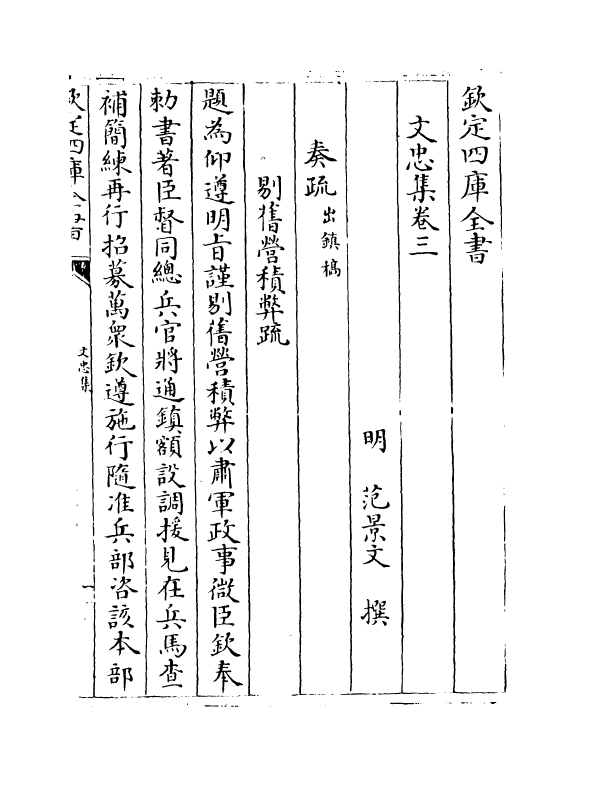 欽定四庫全書
文忠集卷三
明 范景文 撰
奏疏 出鎮稿
剔舊營積弊疏
題為仰遵明㫖謹剔舊營積弊以肅軍政事微臣欽奉
勅書著臣督同總兵官將通鎮額設調援見在兵馬查
補簡練再行招募萬衆欽遵施行隨准兵部咨該本部
欽定四庫全書
文忠集
一